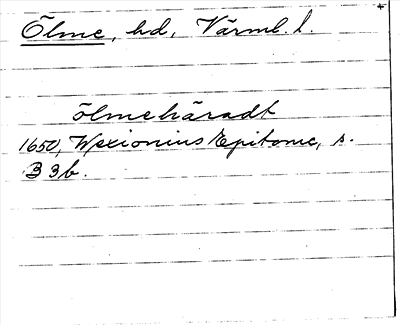 Ölme, hd, Värml. l.
ölmehäradt
1650, Wexionius Epitome, s.
B 3b.